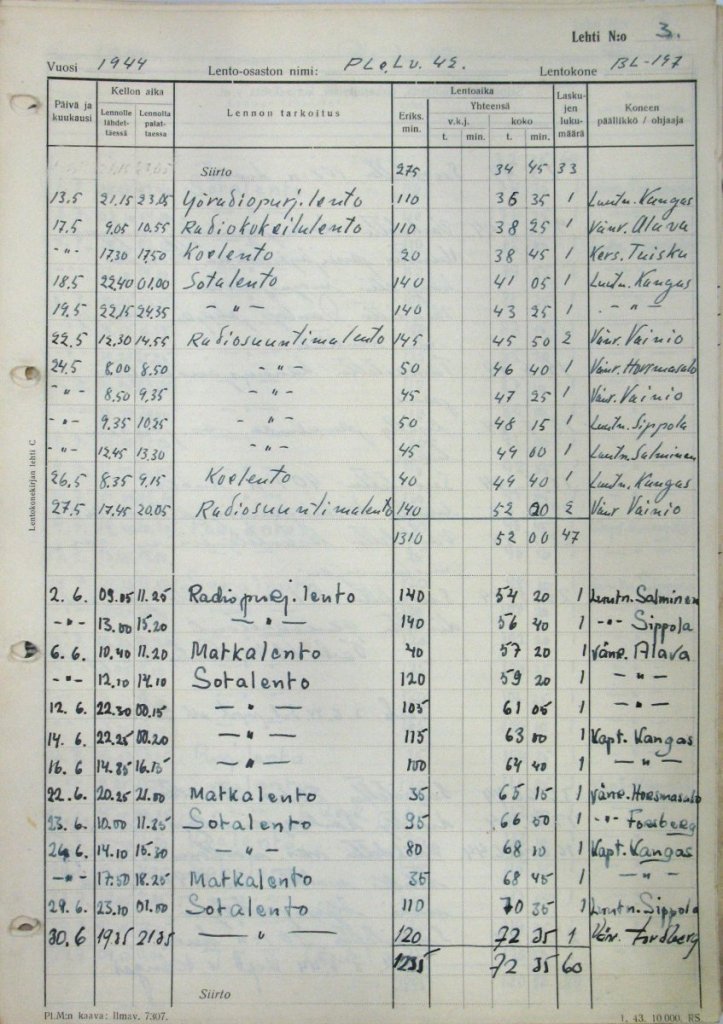 Lehti N:o 3.
Vuosi 1944 Lento-osaston nimi: PLe.Lv. 42. Lentokone BL-197
Päivä ja kuukausi Kellon aika Lennolle lähdettäessä Lennolta palattaessa Lennon tarkoitus Lentoaika Eriks. min. Yhteensä v.k.j. t. min. koko t. min. Laskujen lukumäärä Koneen päällikkö / ohjaaja
Siirto 275 34 45 33
13.5 21.15 23.05 Yöradiopurj.lento 110 36 35 1 Luutn. Kangas
17.5 9.05 10.55 Radiokokeilulento 110 38 25 1 Vänr. Alava
-"- 17.30 17.50 Koelento 20 38 45 1 Kers. Tuisku
18.5 22.40 01.00 Sotalento 140 41 05 1 Luutn. Kangas
19.5 22.15 24.35 -"- 140 43 25 1 -"-
22.5 12.30 14.55 Radiosuuntimalento 145 45 50 2 Vänr. Vainio
24.5 8.00 8.50 -"- 50 46 40 1 Vänr. Horsmasalo
-"- 8.50 9.35 -"- 45 47 25 1 Vänr. Vainio
-"- 9.35 10.25 -"- 50 48 15 1 Luutn. Sippola
-"- 12.45 13.30 -"- 45 49 00 1 Luutn. Salminen
26.5 8.35 9.15 Koelento 40 49 40 1 Luutn. Kangas
27.5 17.45 20.05 Radiosuuntimalento 140 52 00 2 Vänr. Vainio
1310 52 00 47
2. 6. 09.05 11.25 Radiopurj.lento 140 54 20 1 Luutn. Salminen
-"- 13.00 15.20 -"- 140 56 40 1 -"- Sippola
6. 6. 10.40 11.20 Matkalento 40 57 20 1 Vänr. Alava
-"- 12.10 14.10 Sotalento 120 59 20 1 -"-
12. 6. 22.30 00.15 -"- 105 61 05 1 -"-
14. 6. 22.25 00.20 -"- 115 63 00 1 Kapt. Kangas
16. 6 14.35 16.15 -"- 100 64 40 1 -"-
22. 6. 20.25 21.00 Matkalento 35 65 15 1 Vänr. Horsmasalo
23. 6. 10.00 11.35 Sotalento 95 66 50 1 -"- Forsberg
26. 6. 14.10 15.30 -"- 80 68 10 1 Kapt. Kangas
-"- 17.50 18.25 Matkalento 35 68 45 1 -"-
29. 6. 23.10 01.00 Sotalento 110 70 35 1 Luutn. Sippola
30. 6 19.35 21.35 -"- 120 72 35 1 Vänr. Forsberg
1235 72 35 60
Siirto
Pl.M:n kaava: Ilmav. 7307. 1. 43. 10.000. RS.
Lentokonekirjan lehti C